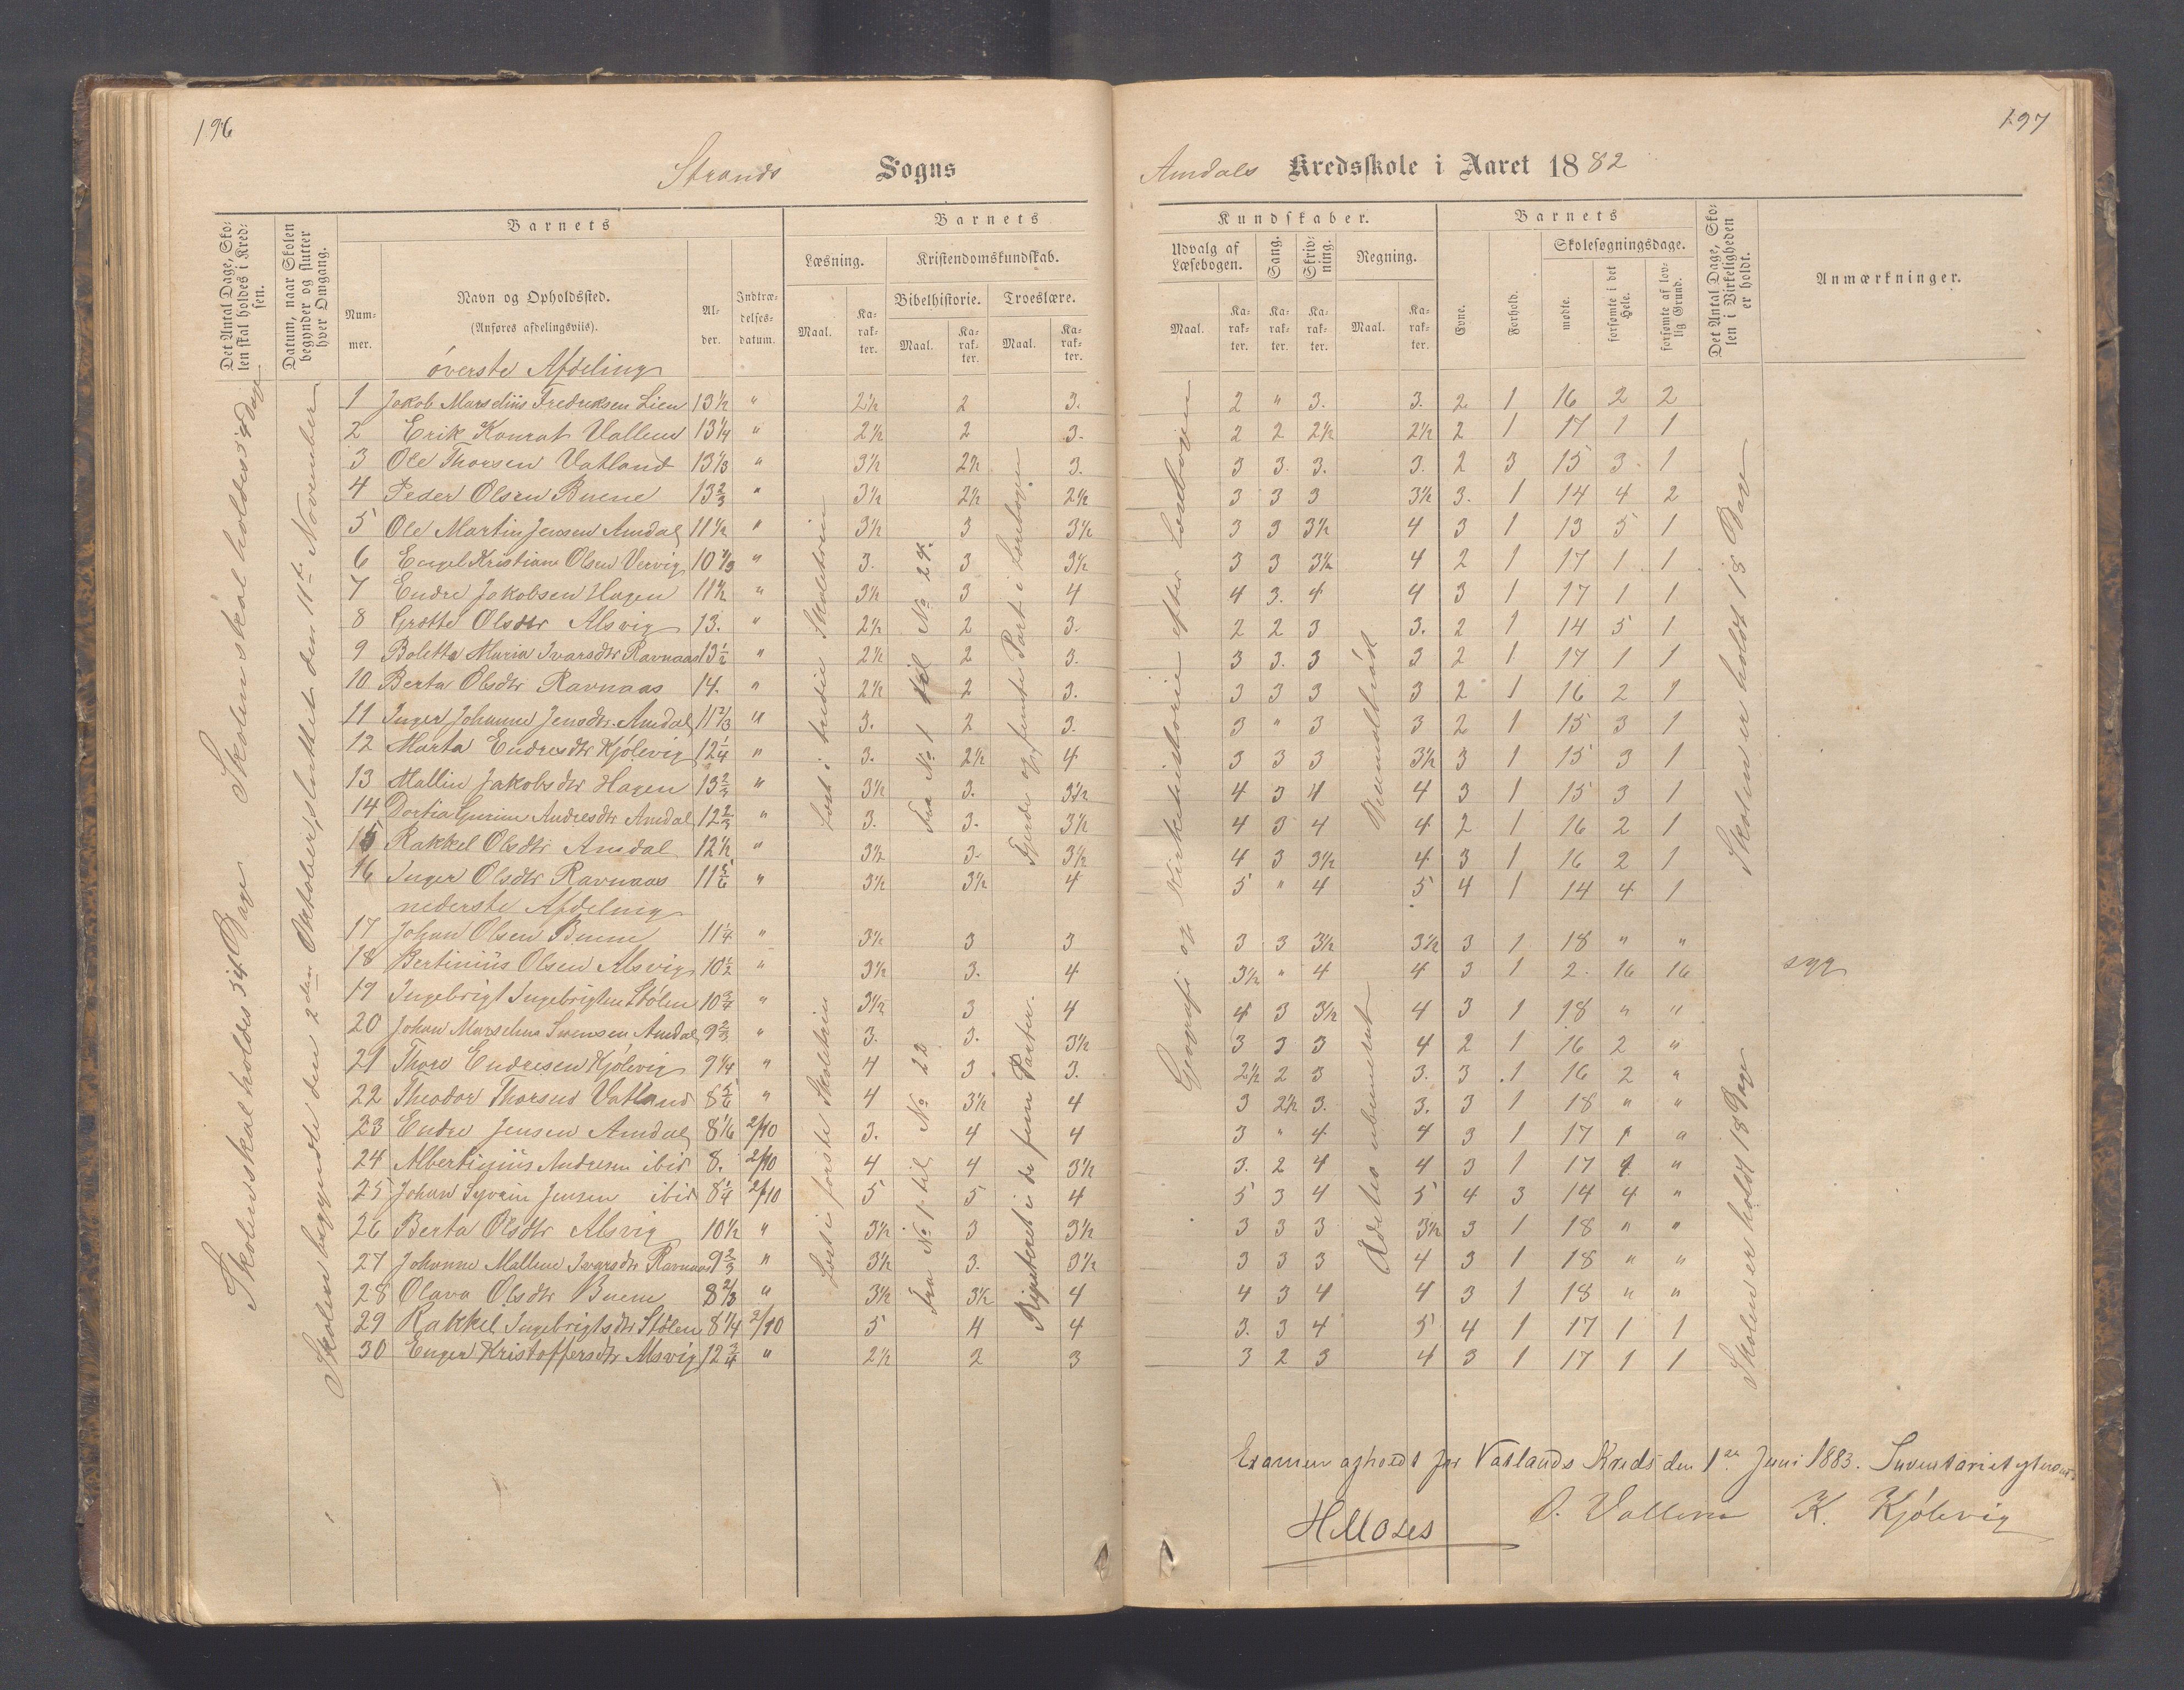 196
197
Strands Sogns
Amdals Kredsskole i Aaret 1882
Det Antal Dage, Skolen skal holdes i Kredsen.
Datum, naar Skolen begynder og slutter hver Omgang.
Barnets
Nummer.
Navn og Opholdssted.
(Anføres afdelingsviis).
Alder.
Indtrædelsesdatum.
Barnets
Læsning.
Kristendomskundskab.
Bibelhistorie.
Troeslære.
Maal.
Karakter.
Maal.
Karakter.
Maal.
Karakter.
Kundskaber.
Udvalg af Læsebogen.
Sang.
Skrivning.
Regning.
Maal.
Karakter.
Karakter.
Karakter.
Maal.
Karakter.
Barnets
Evne.
Forhold.
Skolesøgningsdage.
mødte.
forsømte i det Hele.
forsømte af lovlig Grund.
Det Antal Dage, Skolen i Virkeligheden er holdt.
Anmærkninger.
Skolen skal holdes 54 Dage
Skolen skal holdes 54 Dage
Skolen begyndte den 2den Oktober, sluttet den 11te November
øverste Afdeling
1 Jakob Marselius Fredriksen Lien 13½ " 2½ 2 3. 2 " 3. 3. 2 1 16 2 2
2 Erik Konrat Vallem 13¼ " 2½ 2 3. 2 2 2½ 2½ 2 1 17 1 1
3 Ole Thorsen Vatland 13⅓ " 3½ 2½ 3. 3 3. 3. 3. 2 3 15 3 1
4 Peder Olsen Buene 13⅔ " 3½ 2½ 2½ 3 3 3 3½ 3. 1 14 4 2
5 Ole Martin Jensen Amdal 11½ " 3½ 3 3½ 3 3 3½ 4 3 1 13 5 1
6 Engel Kristiane Olsen Vervig 10⅓ " 3. 3 3½ 3 3 3½ 4 2 1 17 1 1
7 Endre Jakobsen Hagen 11½ " 3½ 3 4 4 3. 4 4 3 1 17 1 1
8 Grøtte Olsdtr Alsvig 13. " 2½ 2 3. 2 2 3 3. 2 1 14 5 1
9 Boletta Maria Ivarsdtr Ravnaas 13½ " 2½ 2 3. 3 3. 3 3 2 1 17 1 1
10 Berta Olsdtr Ravnaas 14. " 2½ 2 3. 3 3 3 3 2 1 16 2 1
11 Inger Johanne Jensdtr. Amdal 11⅔ " 3. 2 3. 3 " 3 3 2 1 15 3 1
12 Marta Endresdtr Kjölevig 12¼ " 3. 2½ 4 3 3 3 3½ 3 1 15 3 1
13 Mallin Jakobsdtr Hagen 13⅔ " 3½ 3. 3½ 4 3 4 4 3 1 15 3 1
14 Dortia Gurine Andresdtr Amdal 12⅔ " 3. 3. 3½ 4 3 4 4 2 1 16 2 1
15 Rakkel Olsdtr Amdal 12½ " 3½ 3. 3½ 4 3 3½ 4 3 1 16 2 1
16 Inger Olsdtr Ravnaas 11⅚ " 3½ 3½ 4 5 " 4 5 4 1 14 4 1
nederste Afdelnig
17 Johan Olsen Buene 11¼ " 3½ 3 3 3 3 3½ 3½ 3 1 18 " "
18 Bertinius Olsen Alsvig 10½ " 3½ 3. 4 3½ " 4 4 3 1 2. 16 16 syg
19 Ingebrigt Ingebrigtsen Stölen 10¾ " 3½ 3 4 4 3 3½ 4 3 1 18 " "
20 Johan Marselius Svensen Amdal 9⅔ " 3. 3. 3½ 3 3 3 4 2 1 16 2 "
21 Thore Endresen Kjölevig 9¼ " 4 3 3. 2½ 2 3 3. 3 1 16 2 "
22 Theodor Thorsen Vatland 8⅚ " 4 3½ 4 3 2½ 3. 3. 3 1 18 " "
23 Endre Jensen Amdal 8⅙ 2/10 3. 4 4 3 " 4 4 3 1 17 1 "
24 Albertinius Andresen ibid 8. 2/10 4 4 3½ 3. 2 4 4 3 1 17 1 "
25 Johan Syvrin Jensen ibid 8¼ 2/10 5 5 4 5 3 4 5 4 3 14 4 "
26 Berta Olsdtr Alsvig 10½ " 3½ 3 3½ 3 3 3 3½ 3 1 18 " "
27 Johanne Malline Ivarsdtr Ravnaas 9⅔ " 3½ 3. 3½ 3 3 3 4 3 1 18 " "
28 Olava Olsdtr Buene 8⅔ " 3½ 3½ 4 4 3 4 4 3 1 18 " "
29 Rakkel Ingebrigtsdtr Stölen 8¼ 2/10 5 4 4 3. 3 4 5 4 1 17 1 1
30 Enger Kristoffersdtr Alsvig 12¾ " 2½ 2 3 3 2 3 4 3 1 17 1 1
Læst i tredie Skoletrin
Fra No 1 til No 24.
Fjerde og femte Part i Lærebogen
Læst i förste Skoletrin
Fra No 1 til No 22
Repeteret i de fem Parter.
Geografi og Kirkehistorie efter Læsebogen
Skolen er holdt 18 Dage
Skolen er holdt 18 Dage
Examen afholdt for Vatlands Kreds den 1ste Juni 1883. Inventariet
H Moses O. Vallem K. Kjölevig